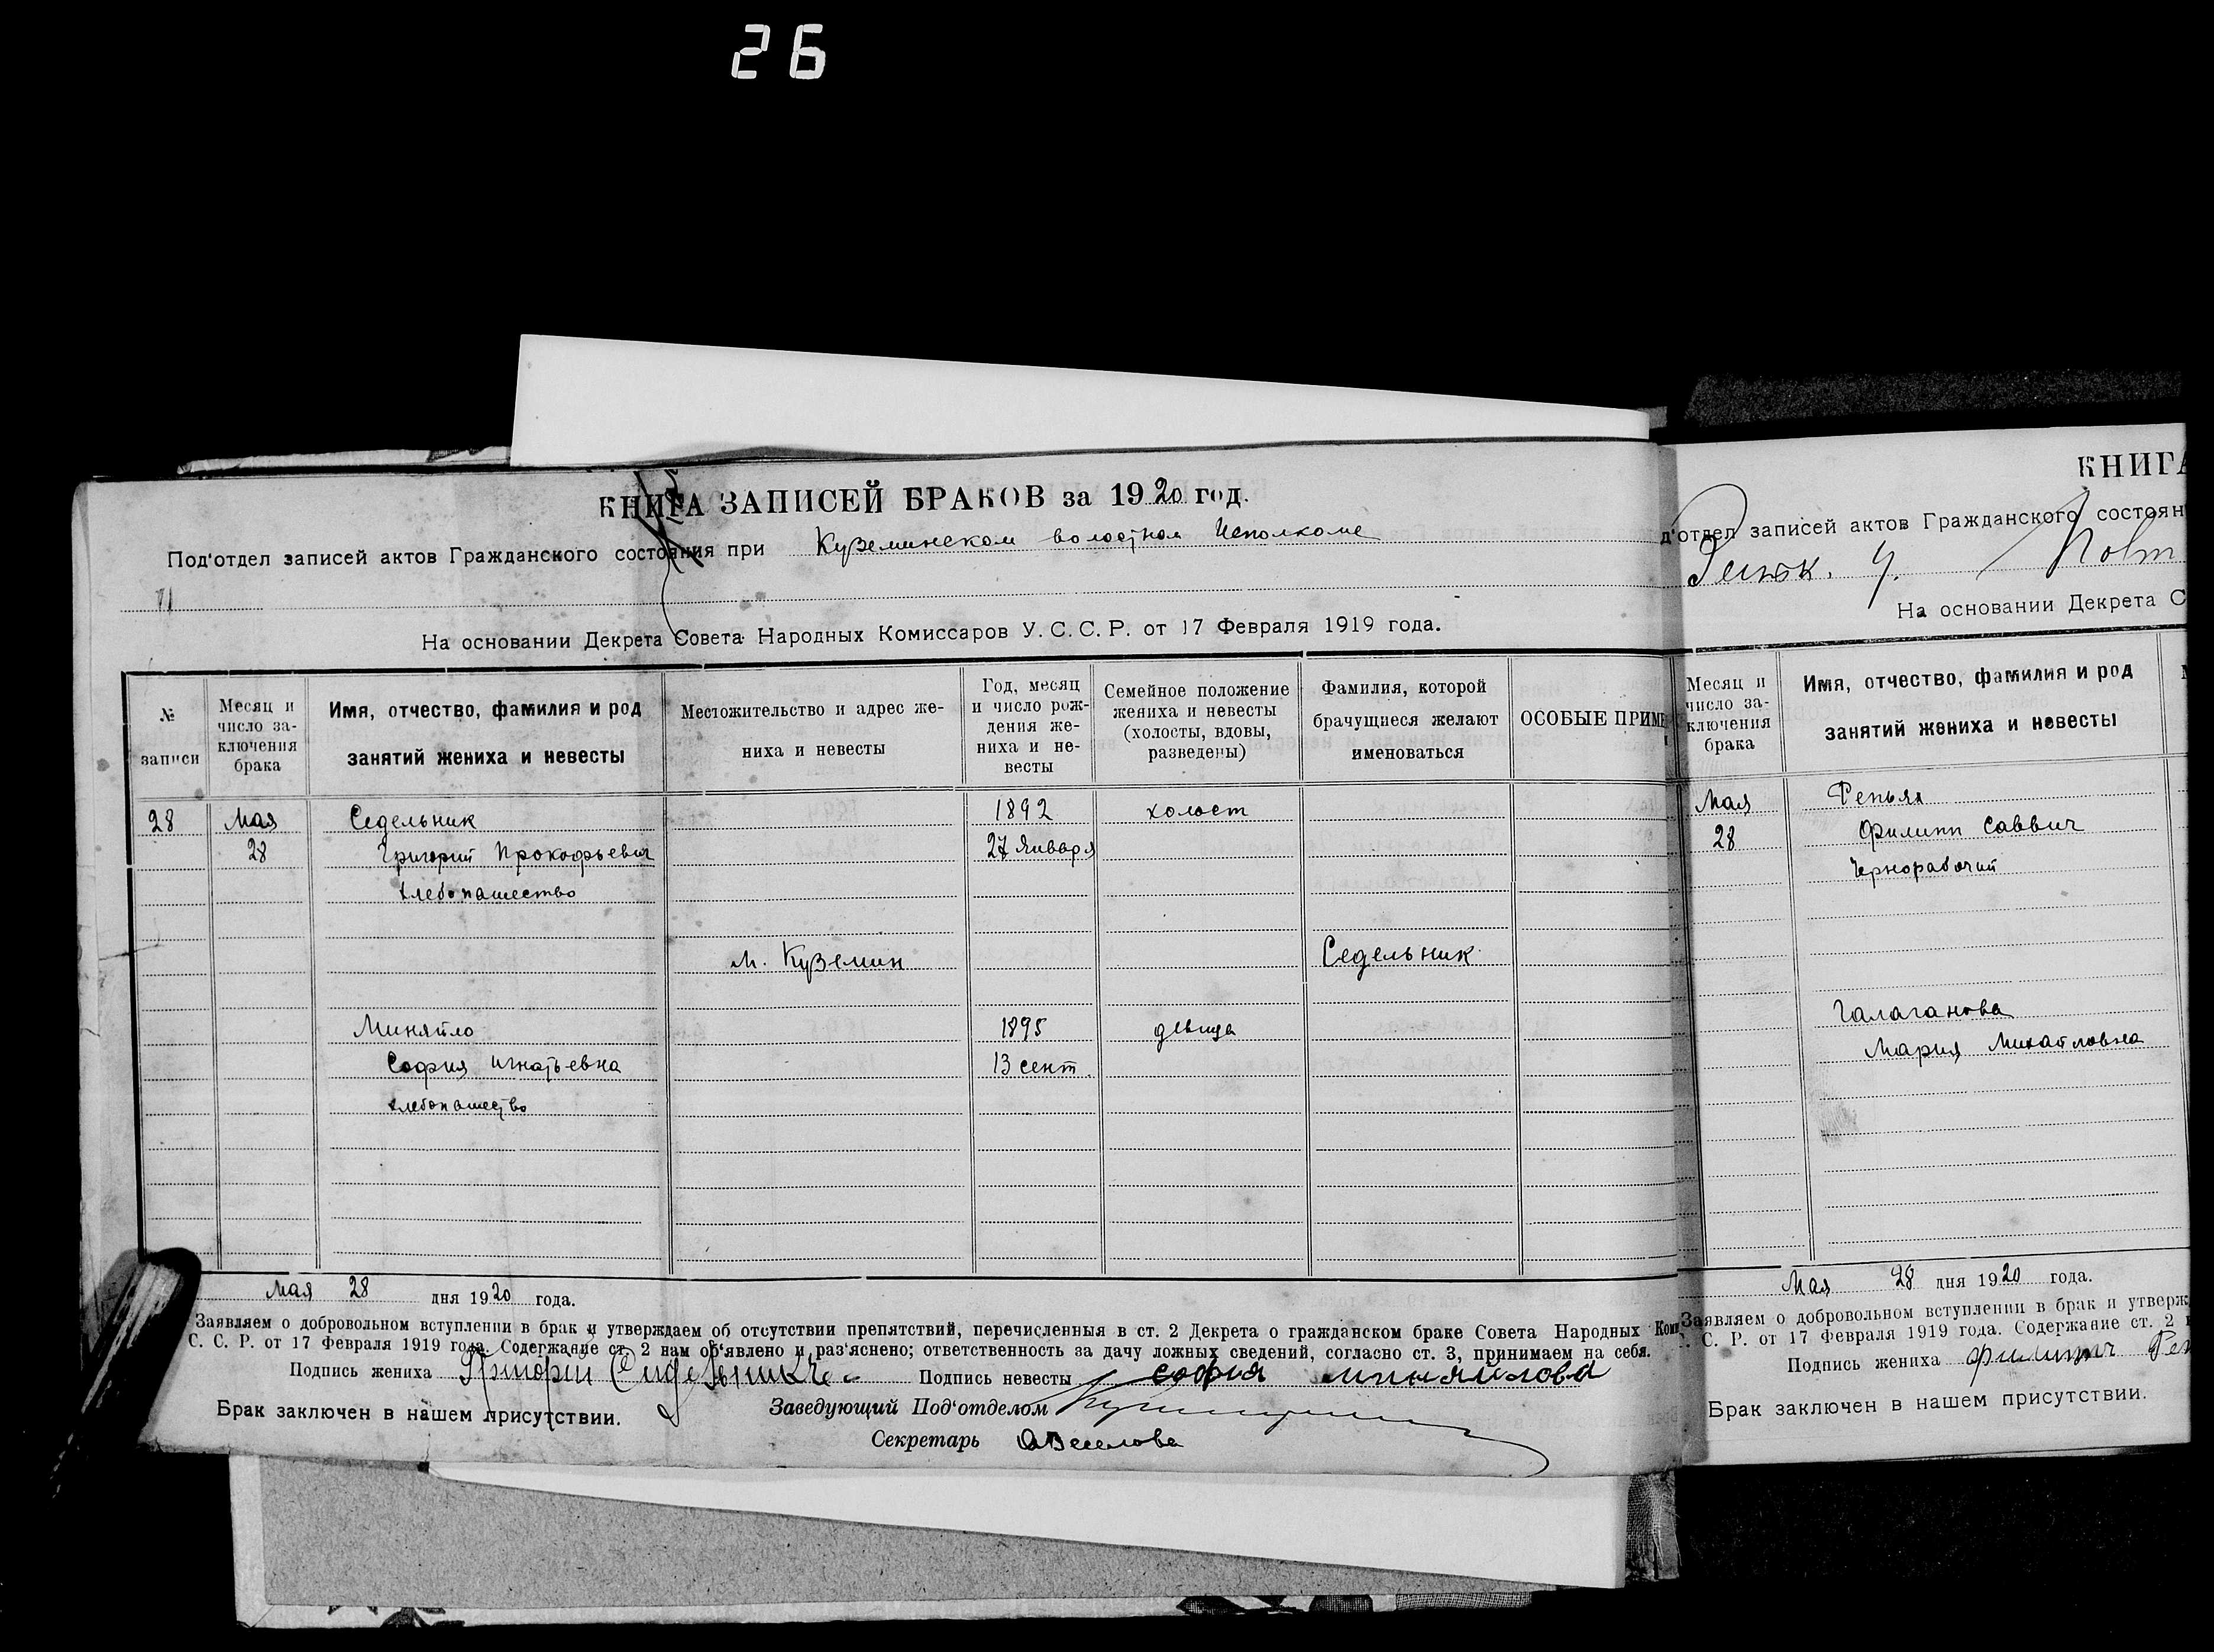 26
КНИГА ЗАПИСЕЙ БРАКОВ за 1920 год.
Под'отдел записей актов Гражданского состояния при Куземинском волостном Исполкоме
На основании Декрета Совета Народных Комиссаров У. С. С. Р. от 17 Февраля 1919 года.
№ записи
Месяц и число заключения брака
Имя, отчество, фамилия и род занятий жениха и невесты
Местожительство и адрес жениха и невесты
Год, месяц и число рождения жениха и невесты
Семейное положение жениха и невесты (холосты, вдовы, разведены)
Фамилия, которой брачущиеся желают именоваться
ОСОБЫЕ ПРИМЕ
28 Мая Седельник 1892 холост
28 Григорий Прокофьевич 27 Января
хлебопашество
м. Куземин Седельник
Миняйло 1895 девица
София Игнатьевна 13 сент.
хлебопашество
Мая 28 дня 1920 года.
Заявляем о добровольном вступлении в брак и утверждаем об отсутствии препятствий, перечисленныя в ст. 2 Декрета о гражданском браке Совета Народных Ком
С. С. Р. от 17 Февраля 1919 года. Содержание ст. 2 нам об'явлено и раз'яснено; ответственность за дачу ложных сведений, согласно ст. 3, принимаем на себя.
Подпись жениха Григорий Подпись невесты София Миняйлова
Брак заключен в нашем присутствии. Заведующий Под'отделом
Секретарь АВеселова
КНИГА
д'отдел записей актов Гражданского состоян
На основании Декрета С
Месяц и число заключения брака
Имя, отчество, фамилия и род занятий жениха и невесты
Мая Репьях
28 Филипп Саввич
Чернорабочий
Галаганова
Мария Михайловна
Мая 28 дня 1920 года.
Заявляем о добровольном вступлении в брак и утверж
С. Р. от 17 Февраля 1919 года. Содержание ст. 2
Подпись жениха Филипп Реп
Брак заключен в нашем присутствии.